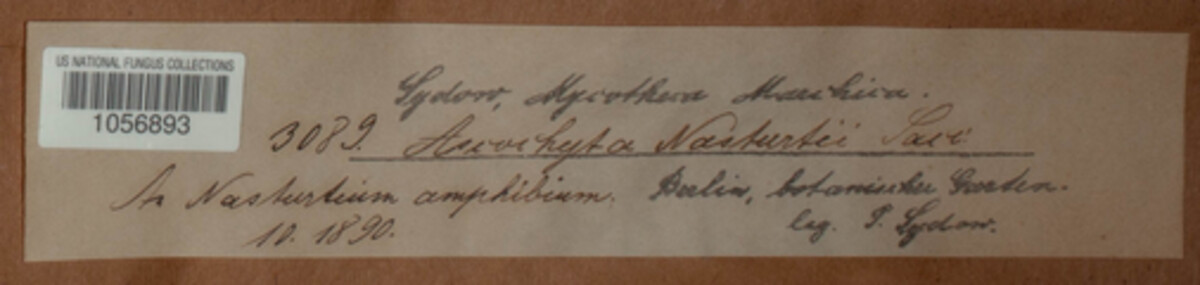 US NATIONAL FUNGUS COLLECTIONS
1056893
Sydow, Mycotheca Marchica.
3089. Ascochyta Nasturtii Sacc
An Nasturtium amphibium. Berlin, botanischer Garten.
10. 1890. leg. P. Sydow.